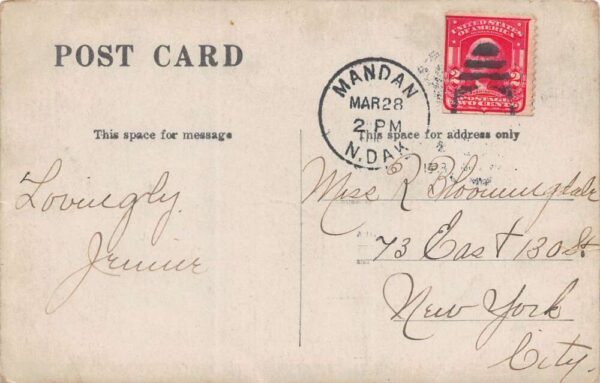 POST CARD
UNITED STATES
OF AMERICA
2 2
POSTAGE
TWO CENTS
MANDAN
MAR 28
2 PM
N.DAK
This space for message
This space for address only
Lovingly
Jennie
Miss R Bloomingdale
73 East 130 St
New York
City.